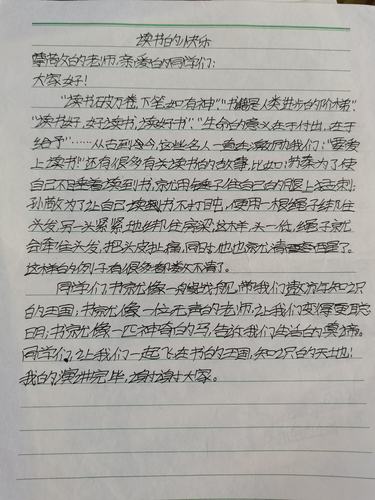 读书的快乐
尊敬的老师,亲爱的同学们:
大家好!
“读书破万卷,下笔如有神”,“书籍是人类进步的阶梯”
“读书好,好读书,读好书”,“生命的意义在于付出,在于
给予”……从古到今,这些名人一直在激励我们:“要爱
上读书”还有很多有关读书的故事,比如:苏秦为了使
自己不目垂着读到书,就用锤子住自己的腿上
孙敬为了让自己读到书不打盹,便用一根绳子绑住
头发,另一头紧紧地绑住房梁,这样,头一低,绳子就
会牵住头发,把头皮扯痛,同时,他也就清醒了。
这样的例子有很多都数不清了。
同学们,书就像一艘帆船,带我们遨游在知识
的王国;书就像一位无声的老师,让我们变得更聪
明;书就像一匹神奇的马,告诉我们生活的真谛。
同学们,让我们一起飞在书的王国,知识的天地!
我的演讲完毕,谢谢大家。